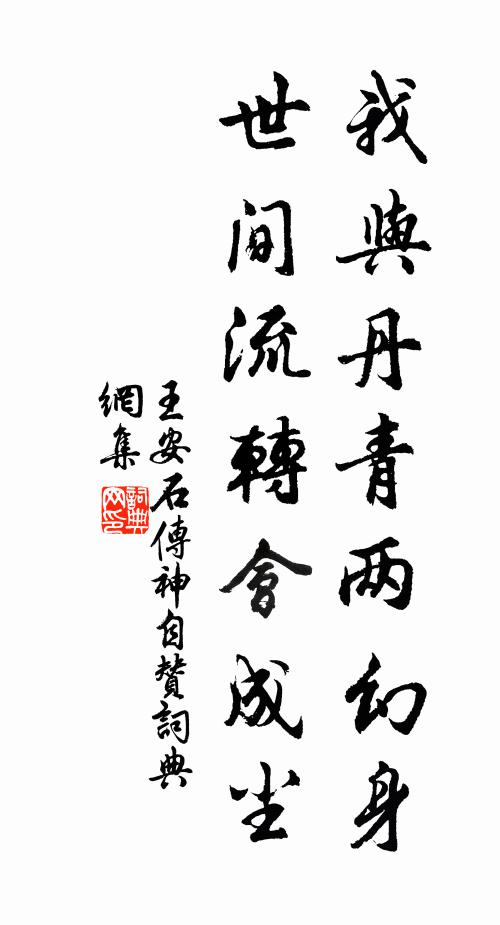 我與丹青两幻身
世間流轉會成尘
王安石傳神自賛詞典
網集
詞典
网印